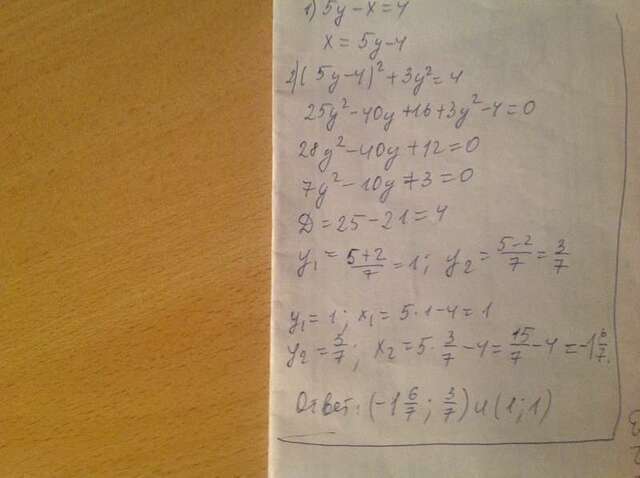 1) 5y - x = 4
x = 5y - 4
2) (5y - 4)² + 3y² = 4
25y² - 40y + 16 + 3y² - 4 = 0
28y² - 40y + 12 = 0
7y² - 10y + 3 = 0
D = 25 - 21 = 4
y₁ = 5+2/7 = 1; y₂ = 5-2/7 = 3/7
y₁ = 1; x₁ = 5·1 - 4 = 1
y₂ = 3/7; x₂ = 5·3/7 - 4 = 15/7 - 4 = -1 6/7.
Ответ: (-1 6/7; 3/7) и (1; 1)